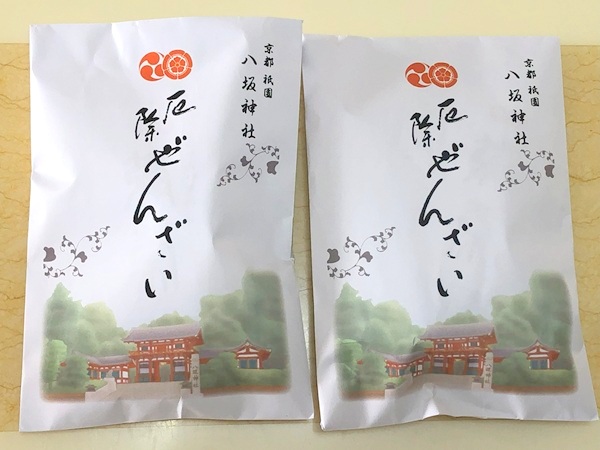 京都 祇園
八坂神社
厄除
ぜんざい
京都 祇園
八坂神社
厄除
ぜんざい